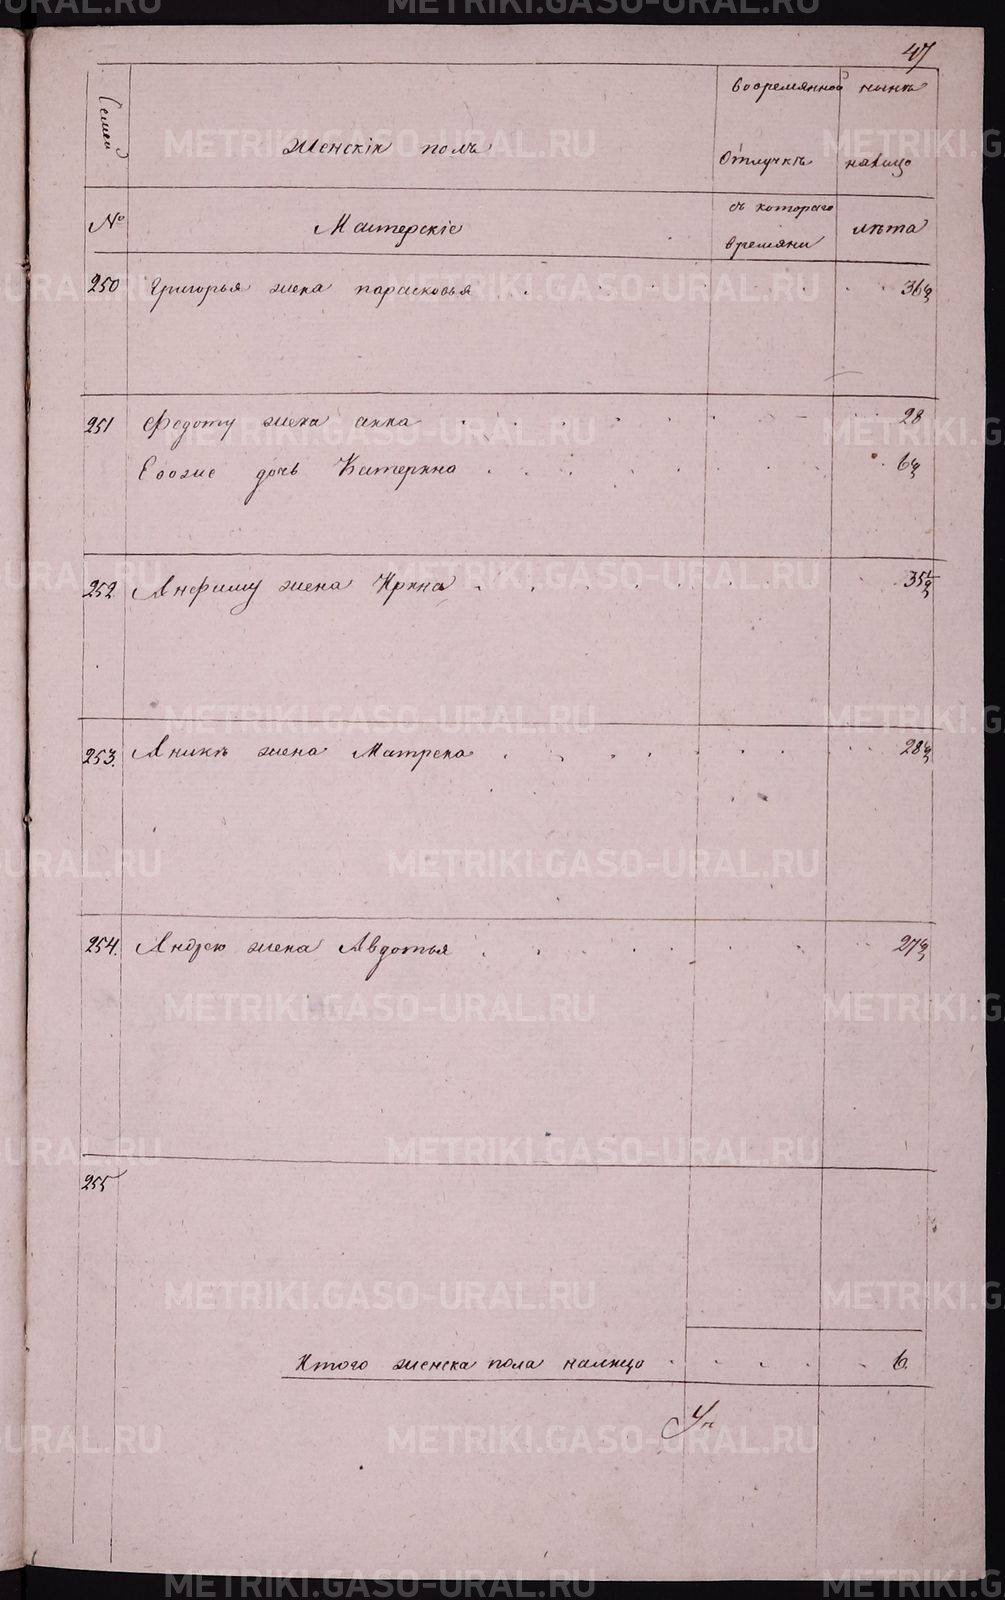 METRIKI.GASO-URAL.RU
47
Семей
Женскій полъ
вовремянной
ныне
Отлучкѣ
налицо
№
Мастерскіе
съ котораго
времяни
лѣта
250 Григорья жена парасковья 36
251 Федоту жена анна 28
Ево же дочь Катерина 6
252. Анфиму жена Ирина 35½
253. Аникѣ жена Матрена 28
254. Андрею жена Авдотья 27
255
Итого женска пола налицо 6.